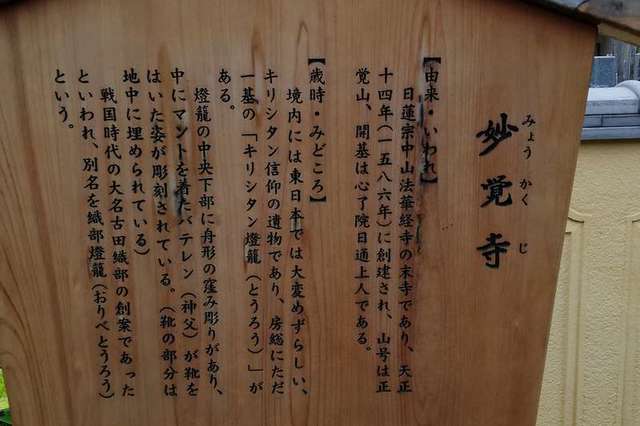 みょう かく じ
妙覚寺
【由来・いわれ】
日蓮宗中山法華経寺の末寺であり、天正
十四年(一五八六年)に創建され、山号は正
覚山、開基は心了院日通上人である。
【歳時・みどころ】
境内には東日本では大変めずらしい、
キリシタン信仰の遺物であり、房総にただ
一基の「キリシタン燈籠(とうろう)」が
ある。
燈籠の中央下部に舟形の窪み彫りがあり、
中にマントを着たバテレン(神父)が靴を
はいた姿が彫刻されている。(靴の部分は
地中に埋められている)
戦国時代の大名古田織部の創案であった
といわれ、別名を織部燈籠(おりべとうろう)
という。